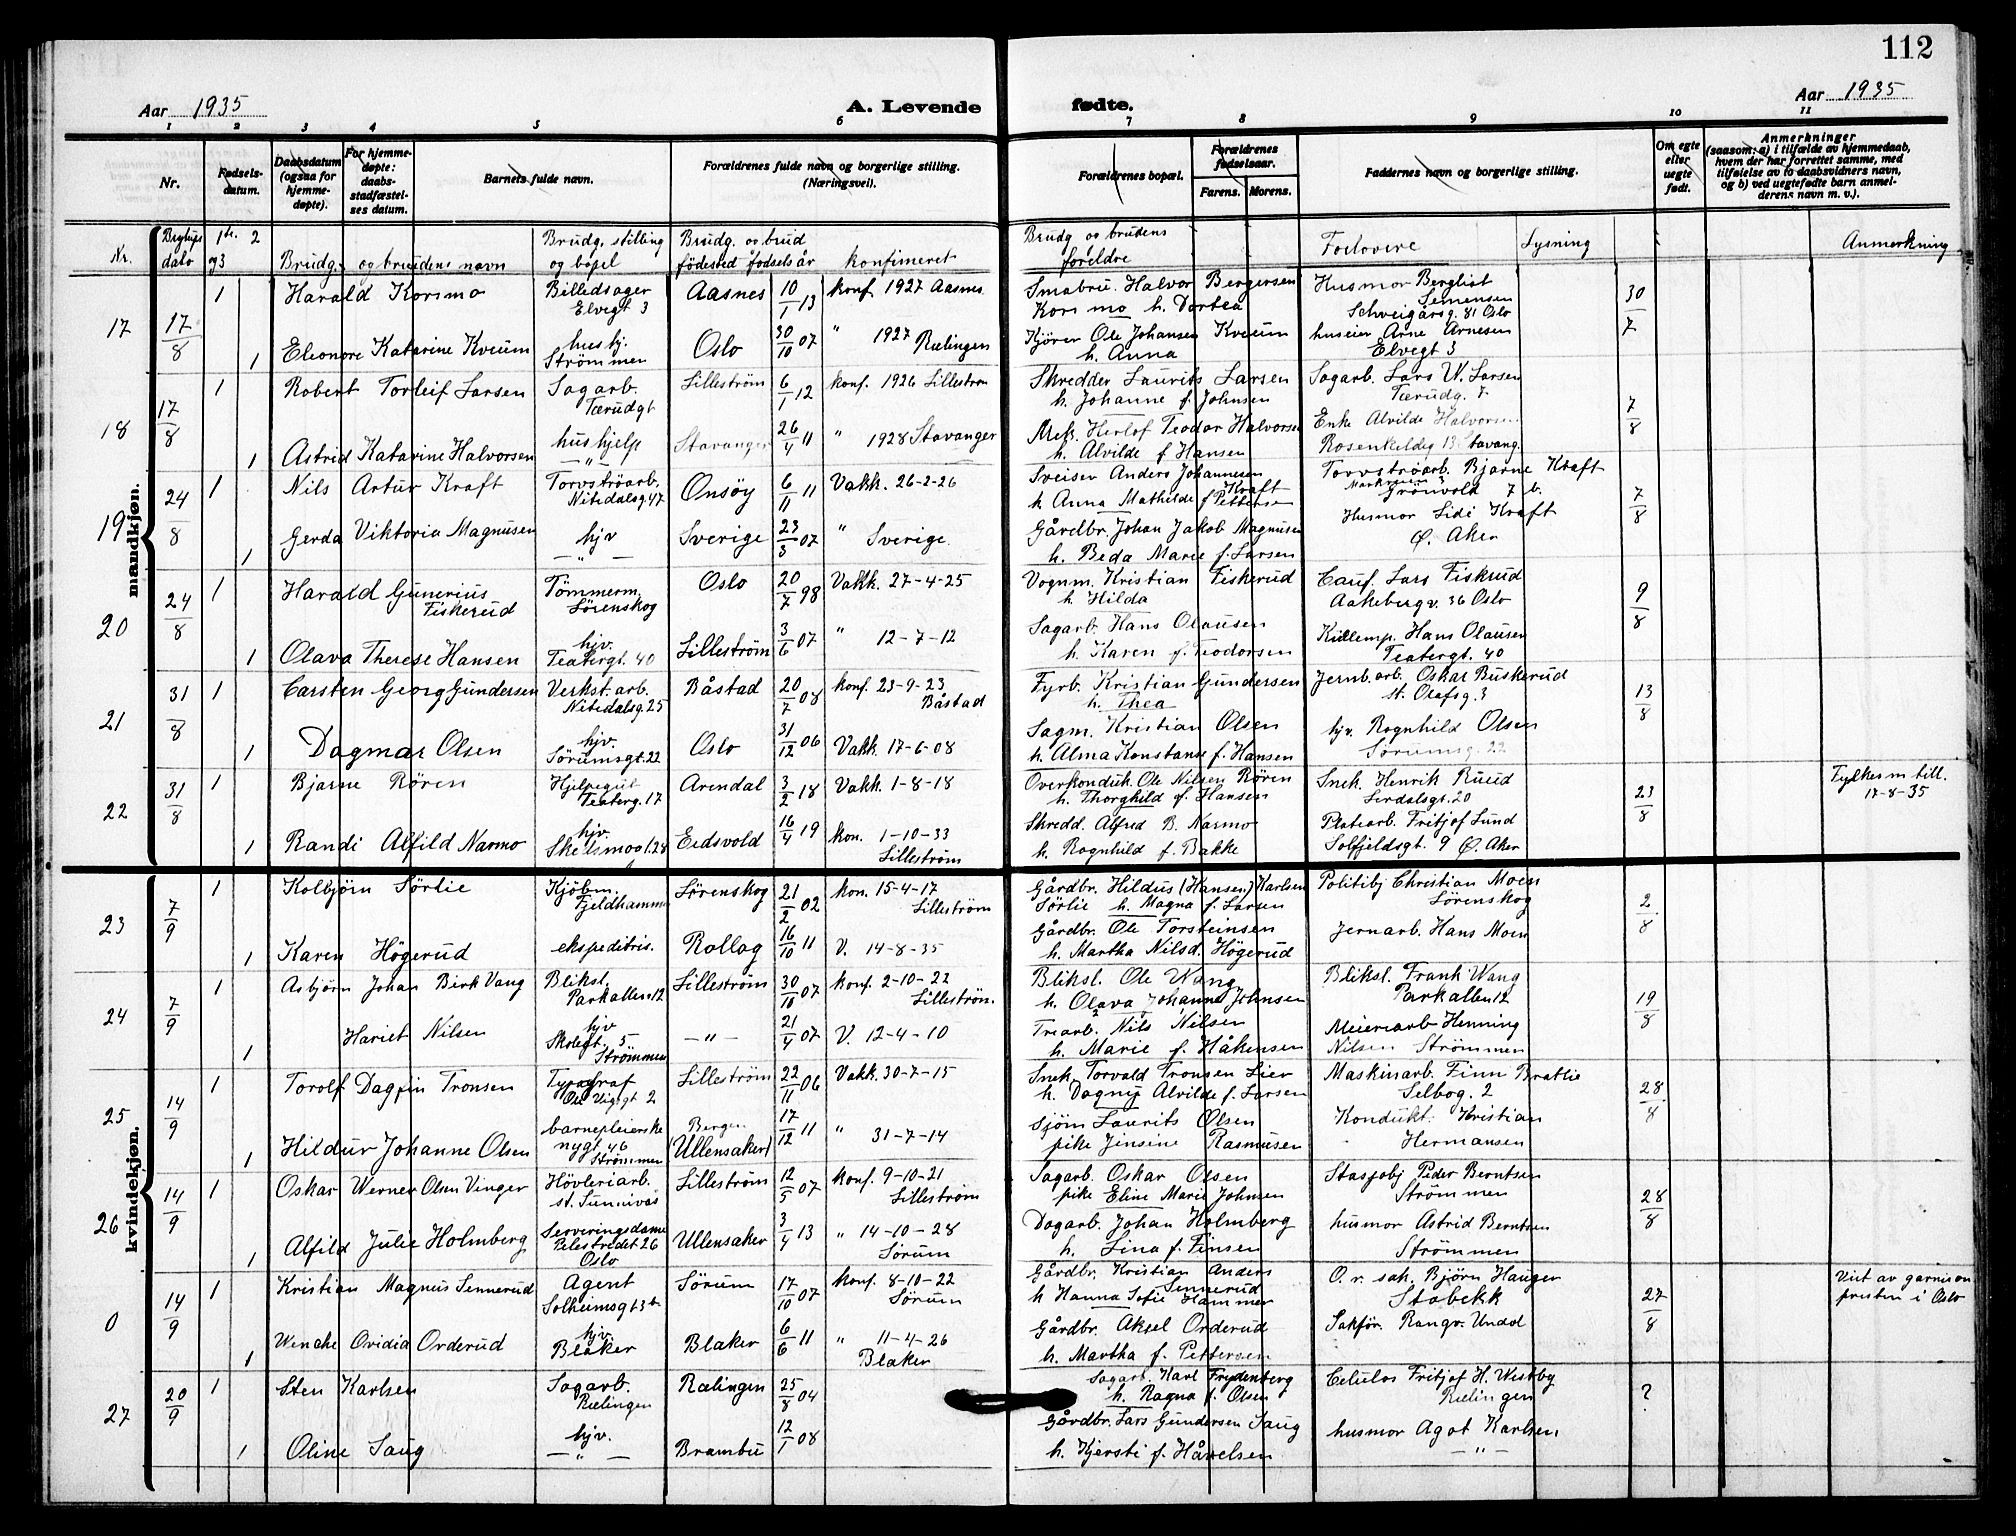 112
Aar 1935
A. Levende fødte.
Aar 1935
1 2 3 4 5 6 7 8 9 10 11
Nr.
Fødsels-
datum.
Daabsdatum
(ogsaa for
hjemme-
døpte).
For hjemme-
døpte:
daabs-
stadfæstel-
ses datum.
Barnets fulde navn.
Forældrenes fulde navn og borgerlige stilling.
(Næringsvei).
Forældrenes bopæl.
Forældrenes
fødselsaar.
Farens. Morens.
Faddernes navn og borgerlige stilling.
Om egte
eller
uegte
født.
Anmerkninger
(saasom: a) i tilfælde av hjemmedaab,
hvem der har forrettet samme, med
tilføielse av to daabsvidners navn,
og b) ved uegtefødte barn anmel-
derens navn m. v.).
Nr. Bryllups dato 1ste. og 3 2 Brudg. og brudens navn
Brudg. stilling og bopel
Brudg. og brud fødested fødselsår konfirmeret
Brudg og brudens foreldre
Forlovere Lysning Anmerkning
mandkjøn.
17 17/8 1 Harald Korsmo Billedsager Elvegt 3 Aasnes 10/1 13 konf. 1927 Aasnes
Smabru. Halvor Bergersen Korsmo h. Dortea
Husmor Bergliot Semensen Schweigårsg. 81 Oslo 30/7
1 Eleonore Katarine Kveum hushj. Strömmen Oslo 30/10 07 " 1927 Rælingen
Kjörer Ole Johansen Kveum h. Anna
huseier Arne Arnesen Elvegt 3
18 17/8 1 Robert Torleif Larsen Sagarb. Tærudgt Lilleström 6/1 12 konf. 1926 Lillestrøm
Skredder Laurits Larsen h. Johanne f. Johnsen
Sagarb. Lars W. Larsen Tærudg. 7 7/8
1 Astrid Katarine Halvorsen hushjelp — " — Stavanger 26/4 11 " 1928 Stavanger
Mek. Herlof Teodor Halvorsen h. Alvilde f Hansen
Enke Alvilde Halvorsen Rosenkeldeg 13 Stavang.
19 24/8 1 Nils Artur Kraft Torvströarb. Nitedalsg 47 Onsöy 6/11 11 Vakk. 26-2-26
Sveiser Anders Johannesen Kraft h. Anna Mathilde f Petterse
Torvströarb. Bjarne Kraft Grönvold 7 b. 7/8
1 Gerda Viktoria Magnusen hjv — " — Sverige 23/3 07 " Sverige.
Gårdbr. Johan Jakob Magnusen h. Beda Marie f. Larsen
Husmor Lidi Kraft Ø. Aker
20 24/8 1 Harald Gunerius Fiskerud Tömmerm. Lörenskog Oslo 20/7 98 Vakk. 27-4-25
Vognm. Kristian Fiskerud h. Hilda
Cauf. Lars Fiskrud Aakebergv. 36 Oslo 9/8
1 Olava Therese Hansen hjv. Teatergt. 40 Lilleström 3/6 07 " 12-7-12
Sagarb. Hans Olausen h. Karen f. Teodorsen
Hans Olausen Teatergt. 40
21 31/8 1 Carsten Georg Gundersen Verkst. arb. Nitedalsg. 25 Båstad 20/7 08 konf. 23-9-23 Båstad
Fyrb. Kristian Gundersen h. Thea
Jernb. arb. Oskar Buskerud st. Olafsg. 3 13/8
1 Dagmar Olsen hjv. Sörumsgt. 22 Oslo 31/12 06 Vakk. 17-6-08
Sagm. Kristian Olsen h. Alma Konstanse f. Hansen
hjv. Rognhild Olsen Sörumsg. 22
22 31/8 1 Bjarne Rören Hjelpegut Teaterg. 17 Arendal 3/2 18 Vakk. 1-8-18
Overkonduk. Ole Nilsen Rören h. Thorghild f. Hansen
Snek. Henrik Ruud Lerdalsgt. 20 23/8 Fylkesm till. 17-8-35
1 Randi Alfild Narmo hjv. Skelsmogt. 24 Eidsvold 16/4 19 kon. 1-10-33 Lilleström
Skredd. Alfred B. Narmo h. Rognhild f. Bakke
Platearb. Fritjof Lund Solfjeldsgt. 9 Ø. Aker
kvindekjøn.
23 7/9 1 Kolbjörn Sörlie Kjöbm. Fjeldhamme Lörenskog 21/2 02 kon. 15-4-17 Lilleström
Gårdbr. Hildus (Hansen) Karlsen Sörlie h. Magna f. Larsen
Politibj Christian Moen Lörenskog 2/8
1 Karen Högerud ekspeditris. Rollag 16/10 11 V. 14-8-35
Gårdbr. Ole Torsteinsen h. Martha Nilsd. Högerud
Jernarb. Hans Moen
24 7/9 1 Asbjörn Johan Birk Vang Blikst. Parkallen 12 Lilleström 30/10 07 konf. 2-10-22 Lilleström.
Blikst. Ole Wang h. Olava Johanne Johnsen
Blikst. Frank Wang Parkallen 12 19/8
1 Hariet Nilsen hjv Skolegt. 5 Strömmen — " — 21/4 07 V. 12-4-10
Trearb. Nils Nilsen h. Marie f. Håkensen
Meieriarb Henning Nilsen Strömmen
25 14/9 1 Torolf Dagfin Tronsen Typograf Ole Vigsgt 2 Lilleström 22/11 06 Vakk. 30-7-15
Snek. Torvald Tronsen Lier h. Dagny Alvilde f. Larsen
Maskinarb. Finn Bratlie Selbog. 2 28/8
1 Hildur Johanne Olsen barnepleierske nygt. 46 Strömmen Bergen (Ullensaker) 17/12 11 " 31-7-14
Sjöm Laurits Olsen pike Jensine Rasmusen
Kondukt. Kristian Hermansen
26 14/9 1 Oskar Werner Olsen Vinger Hövleriarb. st. Sunnivas Lilleström 12/5 07 konf. 9-10-21 Lilleström
Sagarb. Oskar Olsen pike Eline Marie Johnsen
Stasjobj Peder Berntsen Strömmen 28/8
1 Alfild Julie Holmberg Serveringsdame Pilestredet 26 Oslo Ullensaker 3/4 13 " 14-10-28 Sörum
Dagarb. Johan Holmberg h. Lina f. Finsen
husmor Astrid Berntsen Strömmen
0 14/9 1 Kristian Magnus Sennerud Agent Solheimsgt 3 b Sörum 17/10 07 konf. 8-10-22 Sörum
Gårdbr. Kristian Anders Sennerud h Hanna Sofie Hammer
O. r. sak. Bjørn Hauger Stabekk 27/8 Viet av garnison presten i Oslo
1 Wenche Ovidia Orderud hjv. Blaker Blaker 6/6 11 " 11-4-26 Blaker
Gårdbr. Aksel Orderud h. Martha f. Pettersen
Sakför. Rangv. Undal
27 20/9 1 Sten Karlsen Sagarb. Rælingen Rælingen 25/8 04
Sagarb. Karl Frydenberg h. Ragna f. Olsen
Celulos Fritjof H. Westby Rælingen ?
1 Oline Saug hjv. — " — Brambu 12/1 08
Gårdbr. Lars Gundersen Saug h. Kjersti f. Håvelsen.
husmor Agot Karlsen — " —